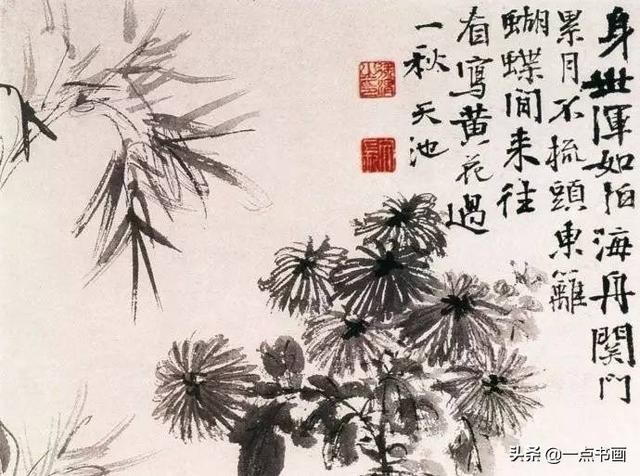 身世渾如拍海舟關門
累月不梳頭東籬
蝴蝶間来往
看寫黄花過
一秋 天池
头条 @一点书画